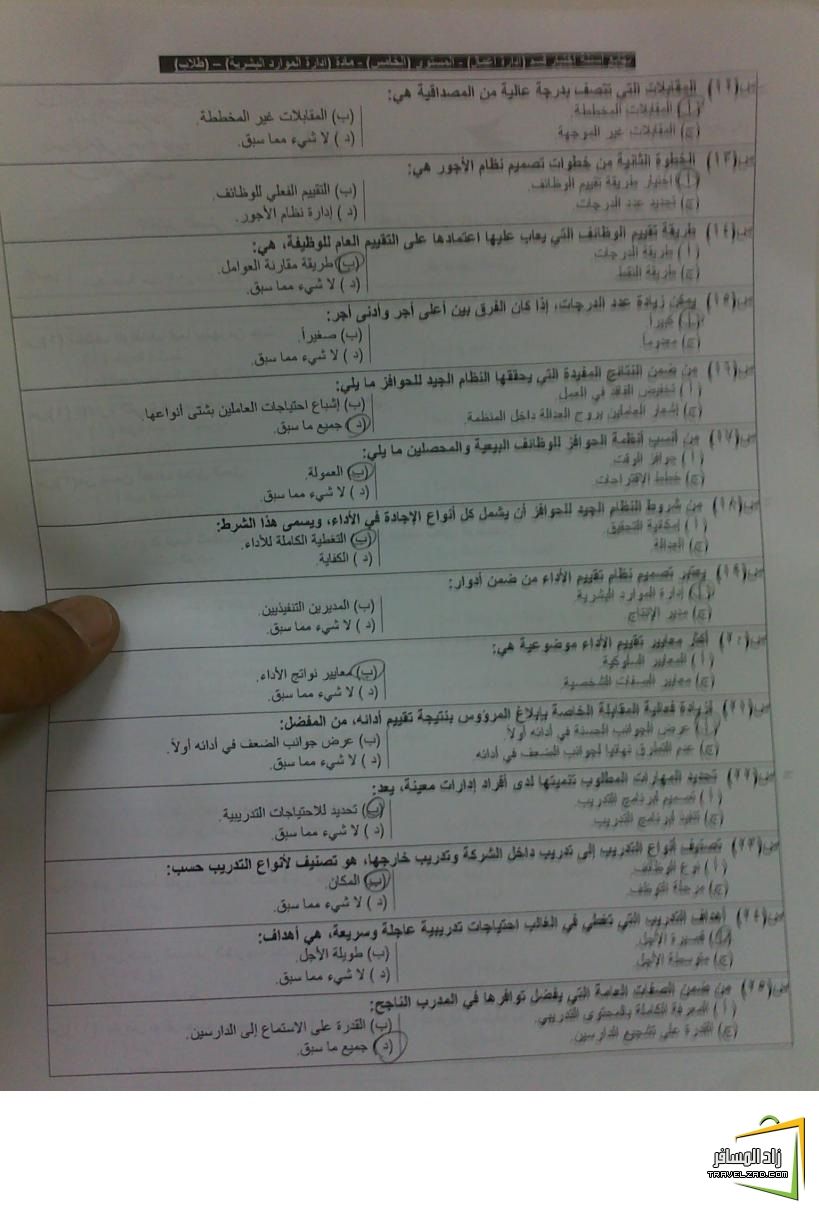 نموذج اسئلة اختبار قسم (إدارة أعمال) - المستوى (الخامس) - مادة (إدارة الموارد البشرية) - (طلاب)
س(١٢) المقابلات التي تتصف بدرجة عالية من المصداقية هي:
(أ) المقابلات المخططة. (ب) المقابلات غير المخططة.
(ج) المقابلات غير الموجهة (د) لا شيء مما سبق.
س(١٣) الخطوة الثانية من خطوات تصميم نظام الأجور هي:
(أ) اختيار طريقة تقييم الوظائف. (ب) التقييم الفعلي للوظائف.
(ج) تحديد عدد الدرجات. (د) إدارة نظام الأجور.
س(١٤) طريقة تقييم الوظائف التي يعاب عليها اعتمادها على التقييم العام للوظيفة، هي:
(أ) طريقة الدرجات (ب) طريقة مقارنة العوامل.
(ج) طريقة النقط (د) لا شيء مما سبق.
س(١٥) يمكن زيادة عدد الدرجات، إذا كان الفرق بين أعلى أجر وأدنى أجر:
(أ) كبيراً (ب) صغيراً.
(ج) معدوماً (د) لا شيء مما سبق.
س(١٦) من ضمن النتائج المفيدة التي يحققها النظام الجيد للحوافز ما يلي:
(أ) تخفيض الفاقد في العمل. (ب) إشباع احتياجات العاملين بشتى أنواعها.
(ج) إشعار العاملين بروح العدالة داخل المنظمة. (د) جميع ما سبق.
س(١٧) من أنسب أنظمة الحوافز للوظائف البيعية والمحصلين ما يلي:
(أ) حوافز الوقت. (ب) العمولة.
(ج) خطط الاقتراحات. (د) لا شيء مما سبق.
س(١٨) من شروط النظام الجيد للحوافز أن يشمل كل أنواع الإجادة في الأداء، ويسمى هذا الشرط:
(أ) إمكانية التحقيق. (ب) التغطية الكاملة للأداء.
(ج) العدالة. (د) الكفاية.
س(١٩) يعتبر تصميم نظام تقييم الأداء من ضمن أدوار:
(أ) إدارة الموارد البشرية. (ب) المديرين التنفيذيين.
(ج) مدير الإنتاج (د) لا شيء مما سبق.
س(٢٠) أكثر معايير تقييم الأداء موضوعية هي:
(أ) المعايير السلوكية. (ب) معايير نواتج الأداء.
(ج) معايير الصفات الشخصية. (د) لا شيء مما سبق.
س(٢١) لزيادة فعالية المقابلة الخاصة بإبلاغ المرؤوس بنتيجة تقييم أدائه، من المفضل:
(أ) عرض الجوانب الحسنة في أدائه أولاً. (ب) عرض جوانب الضعف في أدائه أولاً.
(ج) عدم التطرق نهائياً لجوانب الضعف في أدائه. (د) لا شيء مما سبق.
س(٢٢) تحديد المهارات المطلوب تنميتها لدى أفراد إدارات معينة، يعد:
(أ) تصميم لبرنامج التدريب. (ب) تحديد للاحتياجات التدريبية.
(ج) تنفيذ لبرنامج التدريب. (د) لا شيء مما سبق.
س(٢٣) تصنيف أنواع التدريب إلى تدريب داخل الشركة وتدريب خارجها، هو تصنيف لأنواع التدريب حسب:
(أ) نوع الوظائف. (ب) المكان.
(ج) مرحلة التوظف. (د) لا شيء مما سبق.
س(٢٤) أهداف التدريب التي تغطي في الغالب احتياجات تدريبية عاجلة وسريعة، هي أهداف:
(أ) قصيرة الأجل. (ب) طويلة الأجل.
(ج) متوسطة الأجل. (د) لا شيء مما سبق.
س(٢٥) من ضمن الصفات العامة التي يفضل توافرها في المدرب الناجح:
(أ) المعرفة الكاملة بالمحتوى التدريبي. (ب) القدرة على الاستماع إلى الدارسين.
(ج) القدرة على تشجيع الدارسين. (د) جميع ما سبق.
زاد المسافر
TRAVELZAD.COM